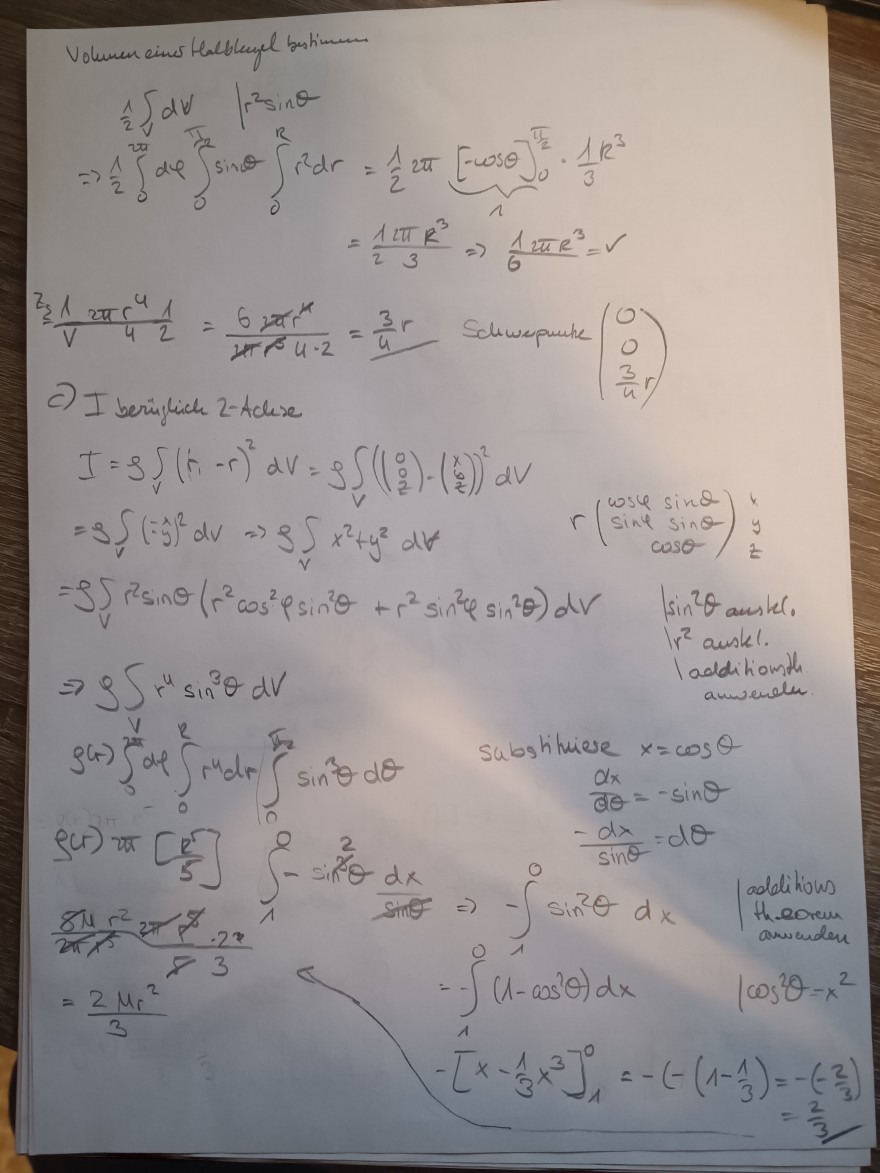 Volumen einer Halbkugel bestimmen
1/2 ∫_V dV | r² sinθ
=> 1/2 ∫_0^{2π} dφ ∫_0^{π/2} sinθ ∫_0^R r² dr = 1/2 2π [-cosθ]_0^{π/2} · 1/3 R³
1
= 1/2 2πR³/3 => 1/6 2πR³ = ✓
1/V 2πr⁴/4 1/2 = 6 2πr⁴/2πr³ 4·2 = 3/4 r Schwerpunkt (0 0 3/4 r)
c) I bezüglich z-Achse
I = ρ ∫_V (r, - r)² dV = ρ ∫_V ((0 0 z) - (x y z))² dV
= ρ ∫_V (-x -y)² dV => ρ ∫_V x² + y² dV r (cosφ sinθ sinφ sinθ cosθ) x y z
= ρ ∫_V r² sinθ (r² cos²φ sin²θ + r² sin²φ sin²θ) dV | sin²θ auskl.
| r² auskl.
| additionsth.
anwenden.
=> ρ ∫_V r⁴ sin³θ dV
ρ(r) ∫_0^{2π} dφ ∫_0^R r⁴ dr ∫_0^{π/2} sin³θ dθ substituiere x = cosθ
dx/dθ = -sinθ
- dx/sinθ = dθ
ρ(r) 2π [R⁵/5] ∫_1^0 - sin²θ dx/sinθ => - ∫_1^0 sin²θ dx | additions
theorem
anwenden
8M r² 2π r⁵ · 2/2π r⁵ 5 3
= - ∫_1^0 (1 - cos²θ) dx | cos²θ = x²
= 2Mr²/3
- [x - 1/3 x³]_1^0 = -(-(1 - 1/3) = -(-2/3)
= 2/3